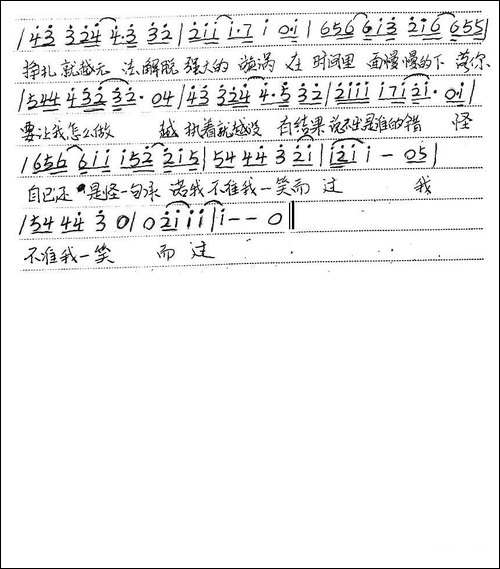 |43 324 4·3 32|211 1·7 1 0·1|656 613 216 655|
挣扎 就越无 法解脱 强大的 漩涡 在 时间里 面慢慢的下 落你
|544 432 32· 04|43 324 4·5 32|2111 17121· 01|
要让我怎么做 越 执着就越没 有结果 说不出是谁的错 怪
|656 611 152 215|54 44 3 21|121 1 - 05|
自己还 是怪一句承 诺我不准我一笑而 过 我
|54 44 3 0|0 21 11|1 - - 0‖
不准我一笑 而 过